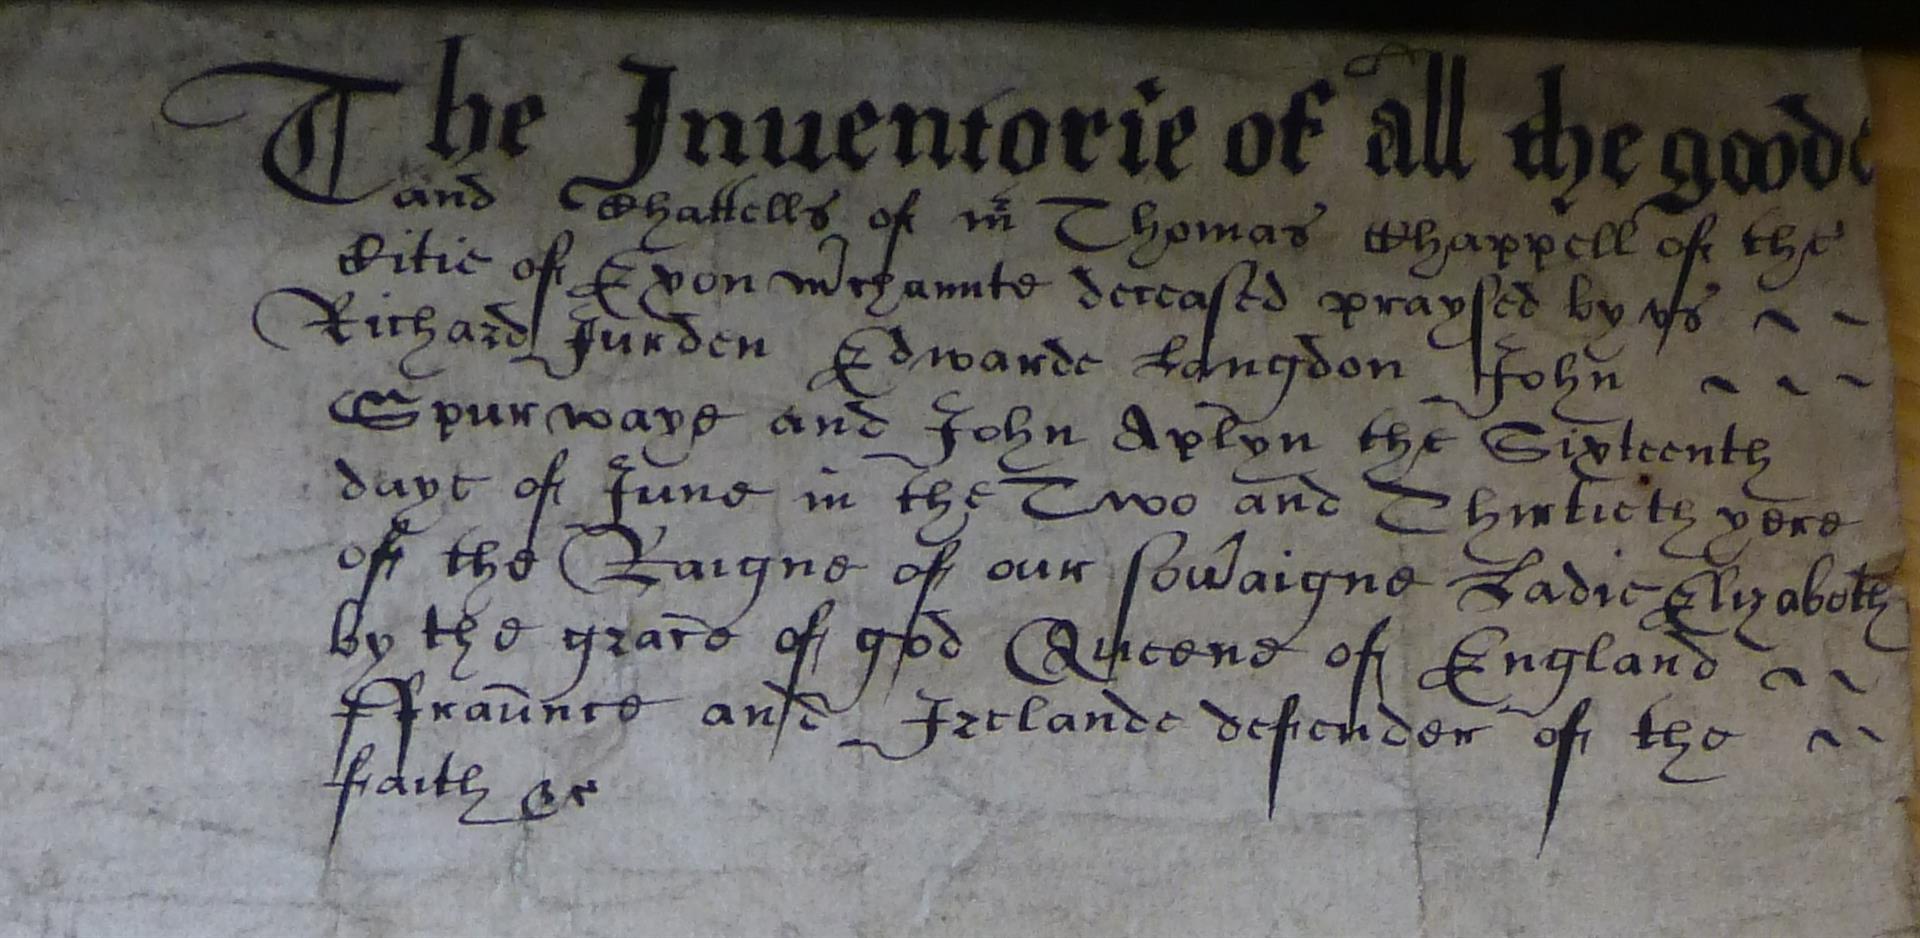 The Inuentorie of all the goode
and Chattells of mr Thomas Chappell of the
Citie of Exon mrchaunte deceased praysed by vs
Richard Jurden Edwarde Langdon John
Spurwaye and John Aplyn the Sixteenth
daye of June in the Two and Thirtieth yere
of the Raigne of our souaigne Ladie Elizabeth
by the grace of god Queene of England
ffraunce and Irelande defender of the
faith &c